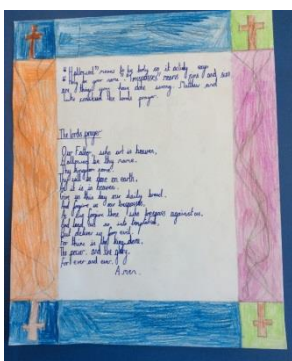 "Hallowed" means to be holy as it actually says
"holy be your name". "Trespasses" means sins and
are things you have done wrong. Matthew and
Luke the lords prayer.
The lords prayer
Our Father, who art in heaven,
Hallowed be thy name.
Thy kingdom come.
Thy will be done on earth,
as it is in heaven.
Give us this day our daily bread.
And forgive us our trespasses,
As we forgive those who trespass against us.
And lead not us into temptation,
But deliver us from evil.
For thine is the kingdom,
The power, and the glory,
For ever and ever.
Amen.